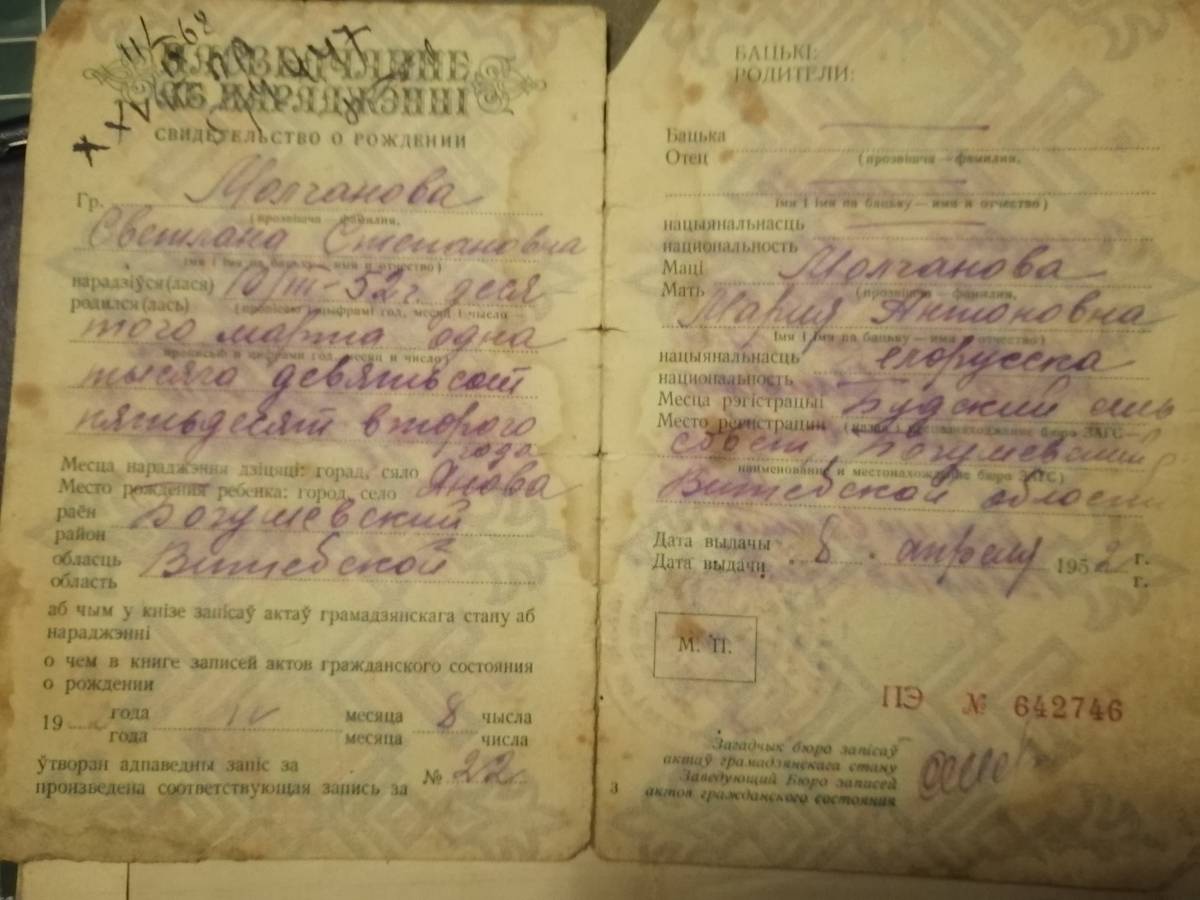 ПАСВЕДЧАННЕ
АБ НАРАДЖЭННІ
СВИДЕТЕЛЬСТВО О РОЖДЕНИИ
Гр. Молчанова
(прозвішча — фамилия,
Светлана Степановна
імя і імя па бацьку — имя и отчество)
нарадзіўся(лася) 10/III-52г. деся
родился(лась)
того марта одна
прописью и цифрами год, месяц и число)
тысяча девятьсот
пятьдесят второго
года
Месца нараджэння дзіцяці: горад, сяло
Место рождения ребенка: город, село Янова
раён Богушевский
район
обласць Витебской
область
аб чым у кнізе запісаў актаў грамадзянскага стану аб
нараджэнні
о чем в книге записей актов гражданского состояния
о рождении
19 года IV месяца 8 чысла
года месяца числа
ўтворан адпаведны запіс за
произведена соответствующая запись за № 22
БАЦЬКІ:
РОДИТЕЛИ:
Бацька
Отец (прозвішча — фамилия,
імя і імя па бацьку — имя и отчество)
нацыянальнасць
национальность
Маці Молчанова
Мать (прозвішча — фамилия,
Мария Антоновна
імя і імя па бацьку — имя и отчество)
нацыянальнасць елорусска
национальность
Месца рэгістрацыі Будский сель
Место регистрации
совет Богушевский
наименование и местонахождение бюро ЗАГС)
Витебской области
Дата выдачы
Дата выдачи 8 апреля 1952 г.
г.
М. П.
ПЭ № 642746
Загадчык бюро запісаў
актаў грамадзянскага стану
Заведующий Бюро записей
3 актов гражданского состояния